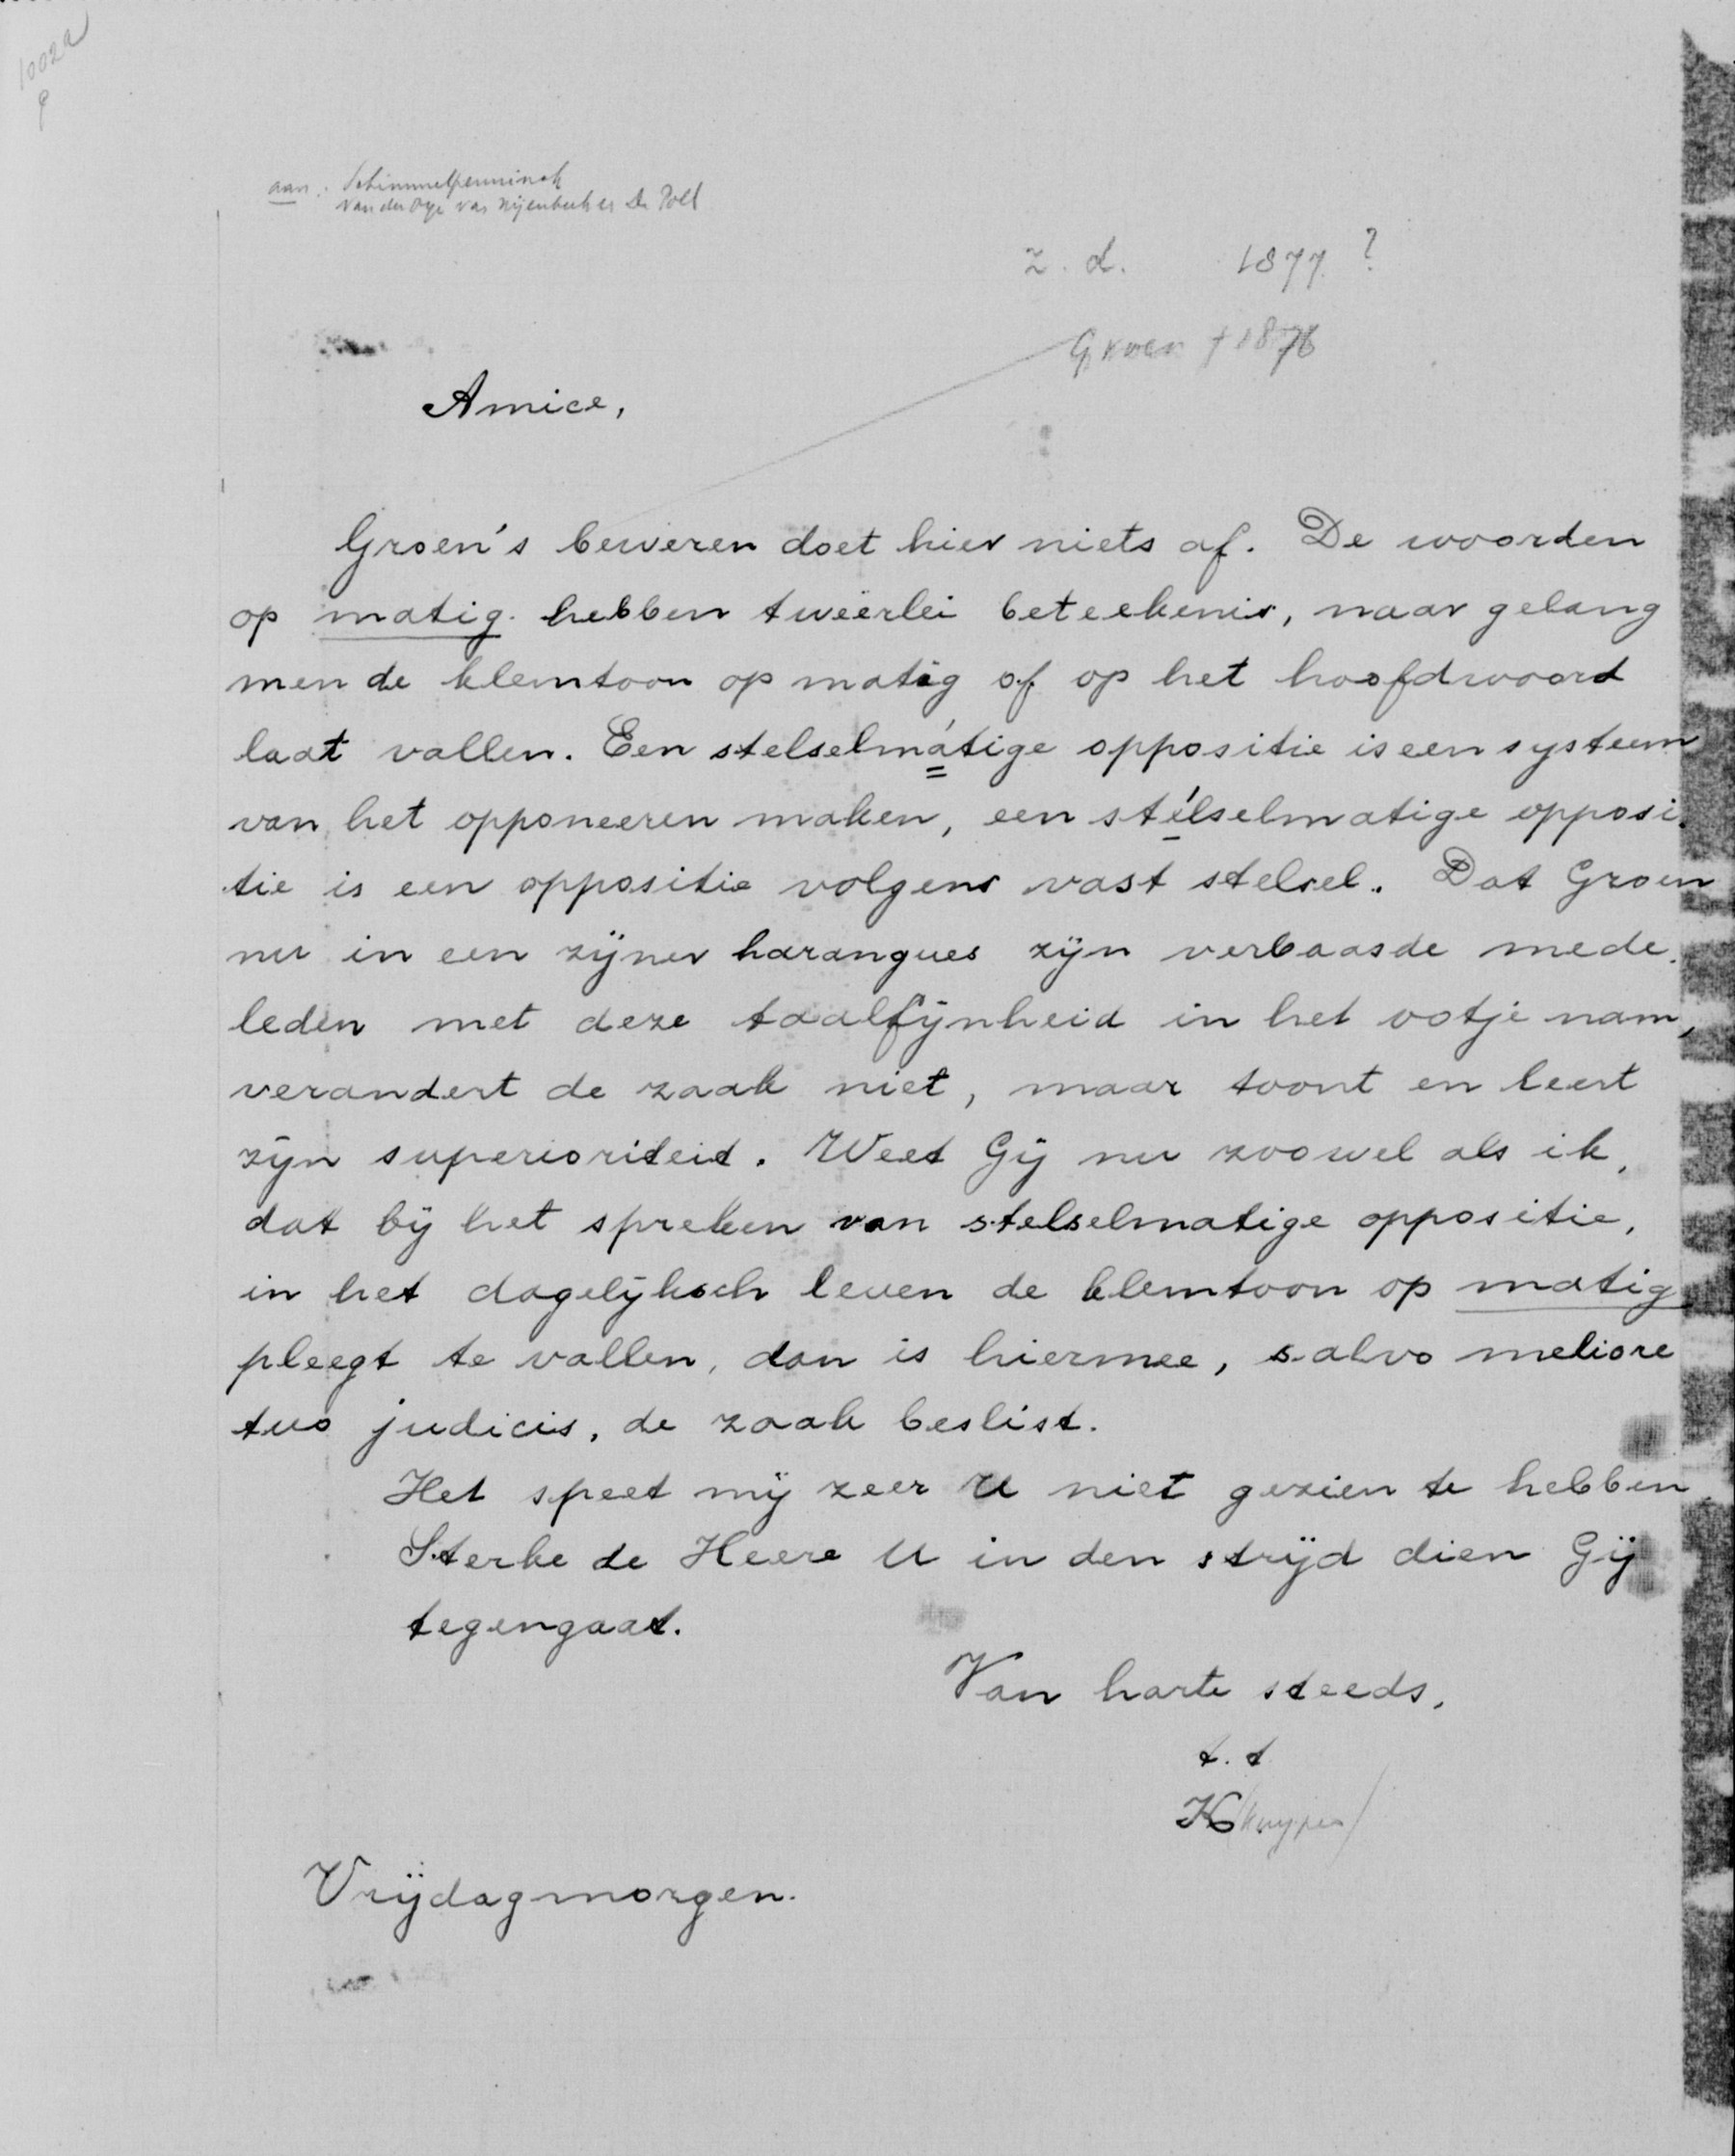 1002a
aan: Schimmelpenninck
van der Oye van Nijenbeek en De Poll
z. d. 1877 ?
Groen † 1876
Amice,
Groen's beweren doet hier niets af. De woorden
op matig hebben tweeërlei beteekenis, naar gelang
men de klemtoon op matig of op het hoofdwoord
laat vallen. Een stelselmátige oppositie is een systeem
van het opponeeren maken, een stélselmatige opposi-
tie is een oppositie volgens vast stelsel. Dat Groen
nu in een zijner harangues zijn verbaasde mede-
leden met deze taalfijnheid in het ootje nam,
verandert de zaak niet, maar toont en leert
zijn superioriteit. Weet Gij nu zoowel als ik,
dat bij het spreken van stelselmatige oppositie,
in het dagelijksch leven de klemtoon op matig
pleegt te vallen, dan is hiermee, salvo meliore
tuo judicis, de zaak beslist.
Het speet mij zeer U niet gezien te hebben
Sterke de Heere U in den strijd dien Gij
tegengaat.
Van harte steeds,
t. t
K (Kuyper)
Vrijdagmorgen.